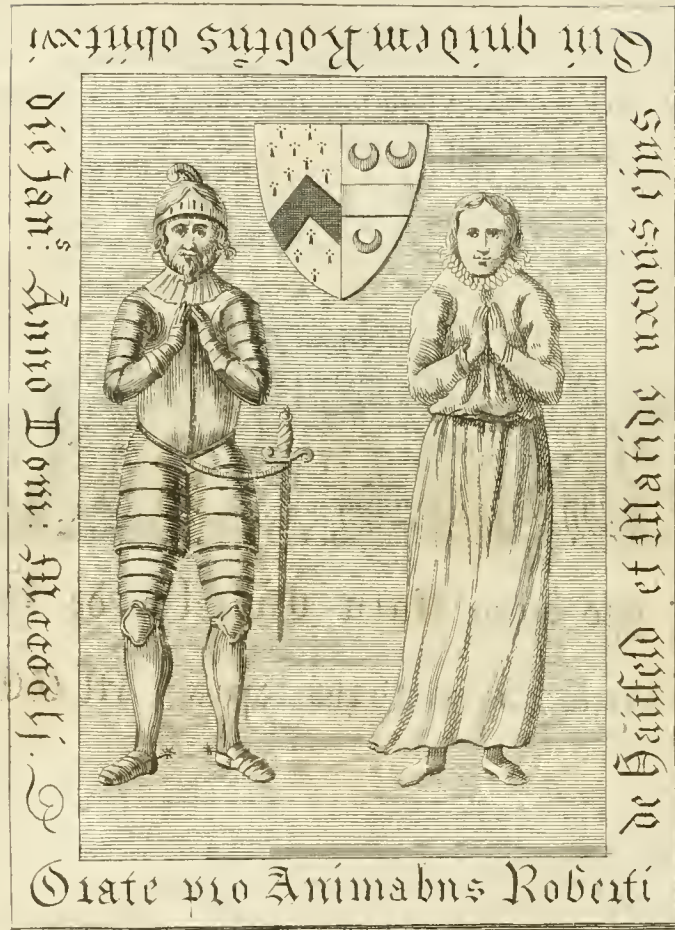 Orate pro Animabus Roberti
de Haitfeld et Matilde uxoris ejus
Qui quidem Robtus obiit xvi
die Jan: Anno Dom: